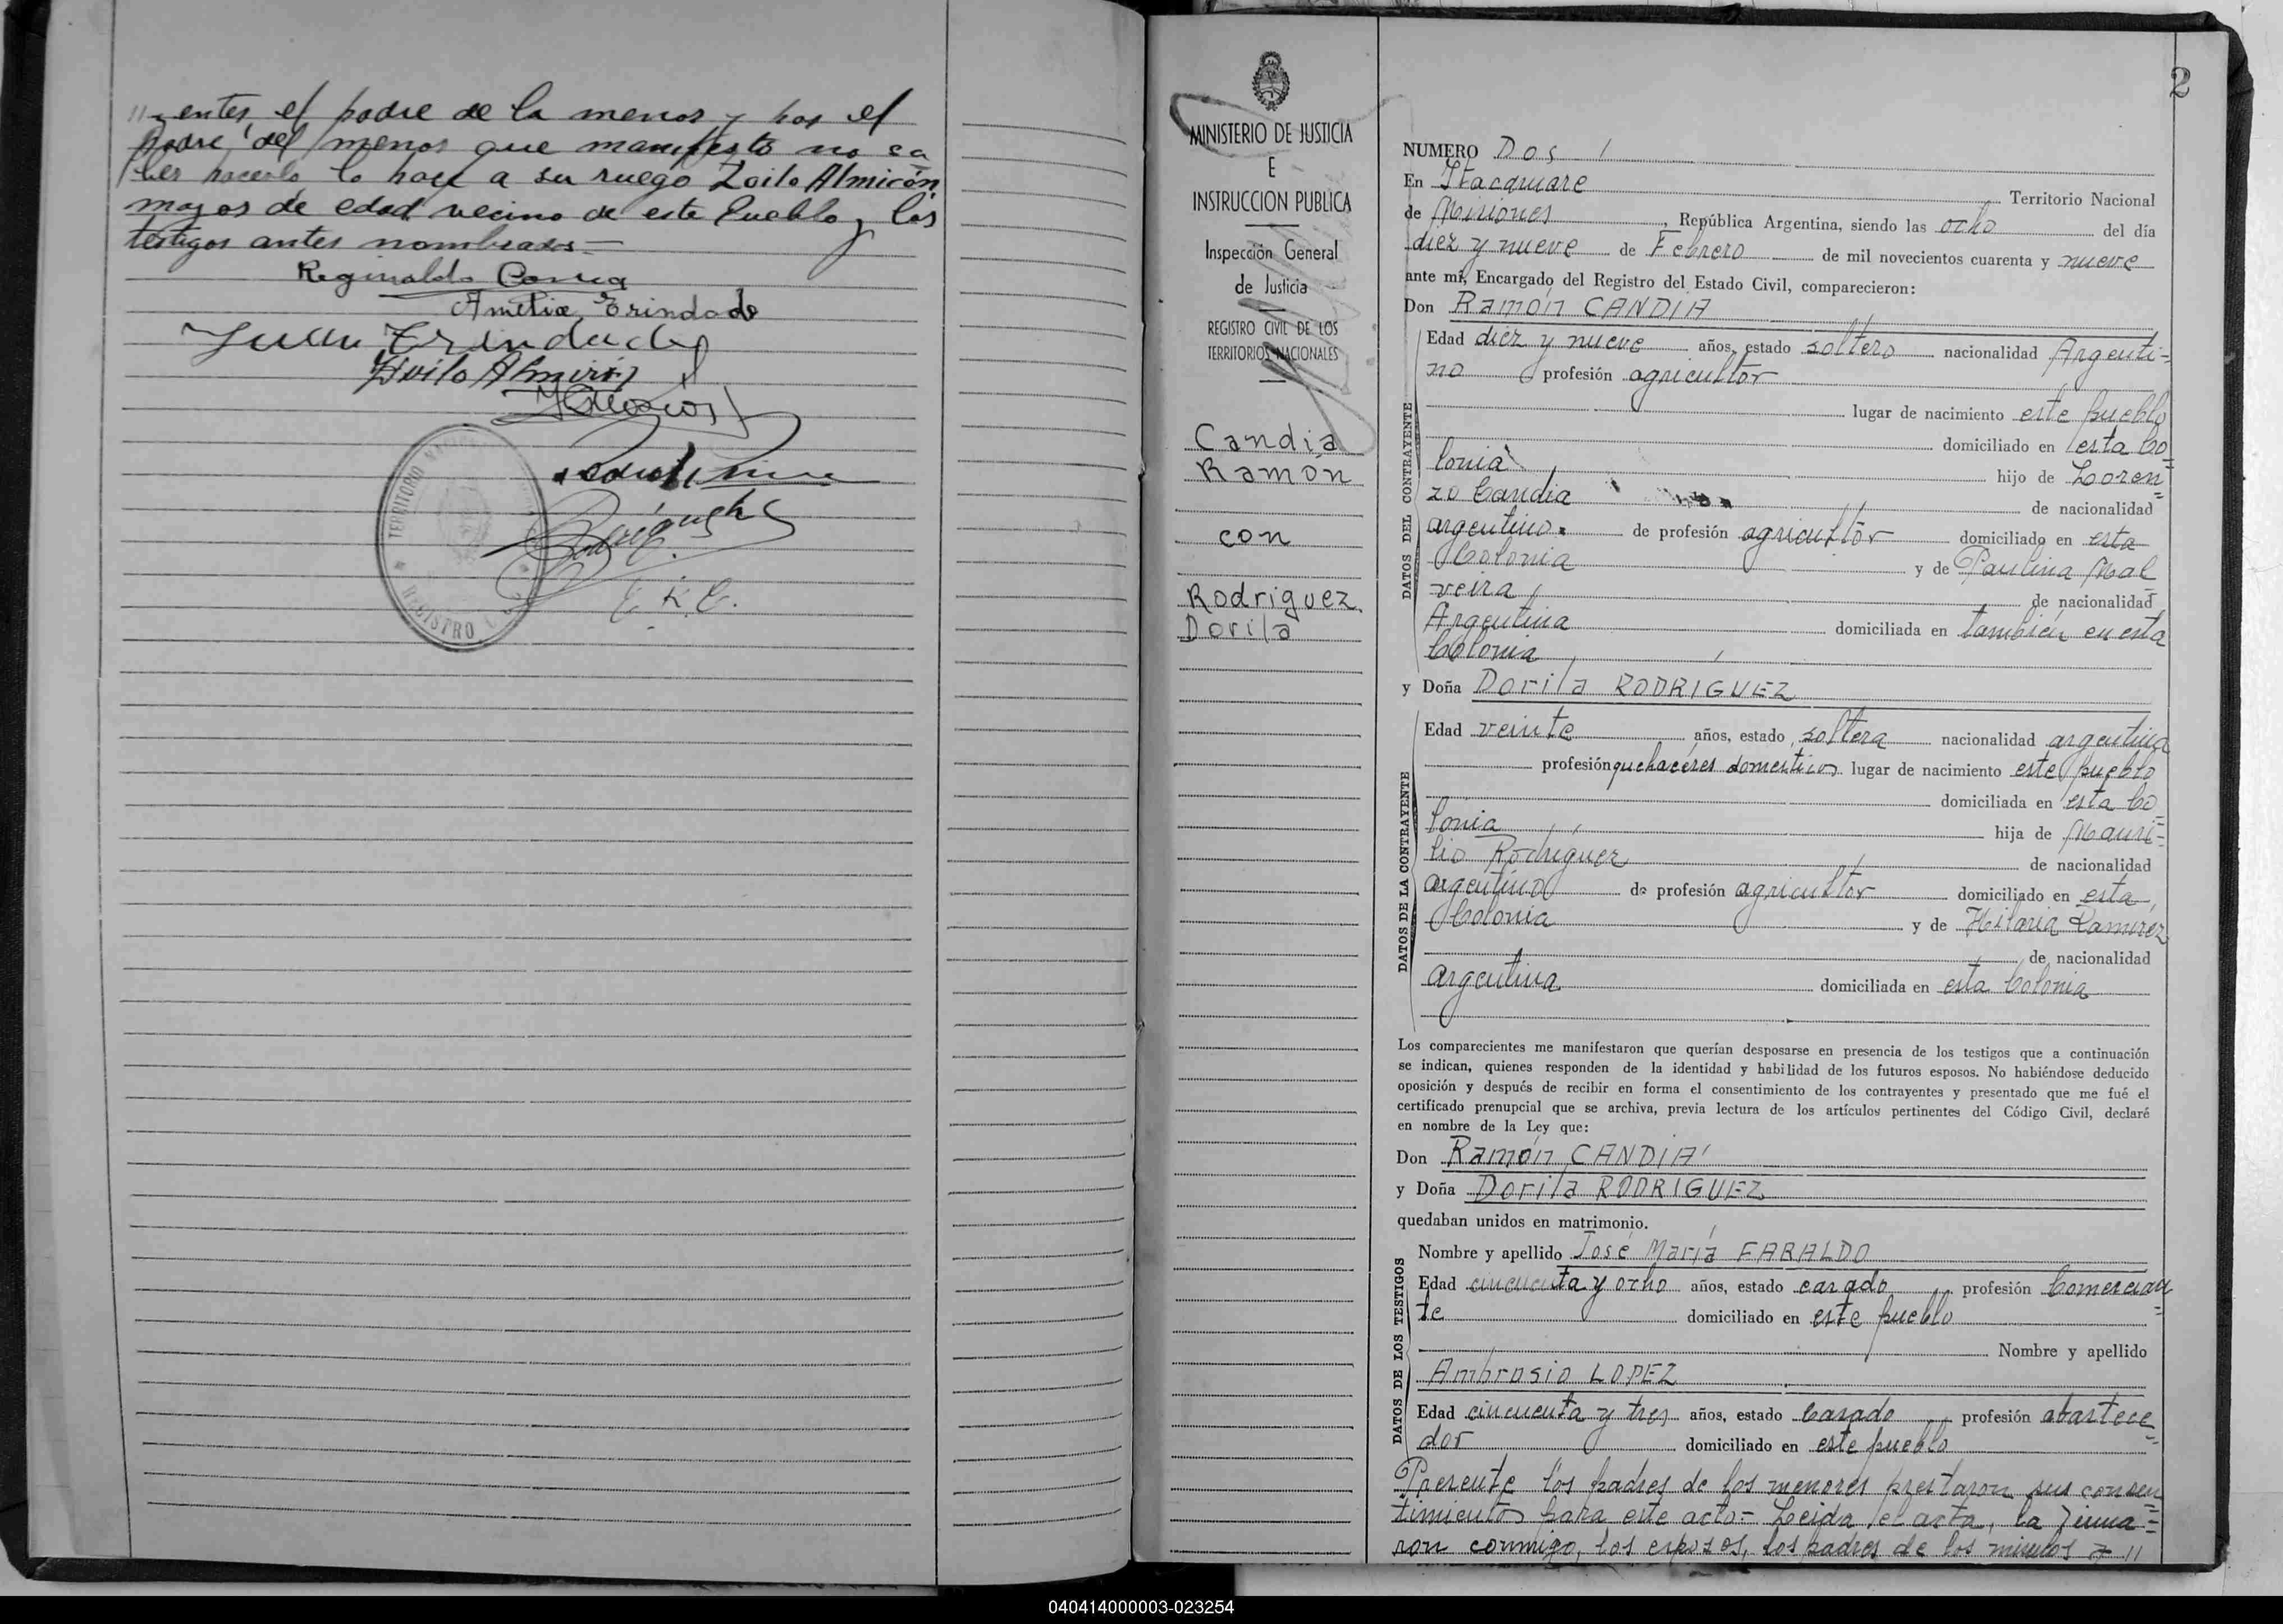 "entes, el padre de la menor y por el
padre del menor que manifestó no sa
ber hacerlo lo hace a su ruego Zoilo Almirón,
mayor de edad vecino de este Pueblo y los
testigos antes nombrados—
Reginaldo
Amelia Trindade
Trindade
Zoilo Almirón
TERRITORIO
REGISTRO
Rodríguez
E. R. C.
2
MINISTERIO DE JUSTICIA
E
INSTRUCCION PUBLICA
Inspección General
de Justicia
REGISTRO CIVIL DE LOS
TERRITORIOS NACIONALES
Candia
Ramón
con
Rodriguez
Dorila
NUMERO Dos
En Itacaruaré Territorio Nacional
de Misiones, República Argentina, siendo las ocho del día
diez y nueve de Febrero de mil novecientos cuarenta y nueve
ante mí, Encargado del Registro del Estado Civil, comparecieron:
Don Ramón CANDIA
DATOS DEL CONTRAYENTE
Edad diez y nueve años, estado soltero nacionalidad Argenti=
no profesión agricultor
lugar de nacimiento este pueblo
domiciliado en esta Co=
lonia hijo de Loren=
zo Candia de nacionalidad
argentino de profesión agricultor domiciliado en esta
Colonia y de Paulina Mal
veira de nacionalidad
Argentina domiciliada en también en esta
Colonia
y Doña Dorila RODRIGUEZ
DATOS DE LA CONTRAYENTE
Edad veinte años, estado soltera nacionalidad argentina
profesión quehaceres domesticos lugar de nacimiento este pueblo
domiciliada en esta Co
lonia hija de Mauri=
cio Rodriguez de nacionalidad
argentino de profesión agricultor domiciliado en esta
Colonia y de Hilaria Ramirez
de nacionalidad
argentina domiciliada en esta Colonia
Los comparecientes me manifestaron que querían desposarse en presencia de los testigos que a continuación
se indican, quienes responden de la identidad y habilidad de los futuros esposos. No habiéndose deducido
oposición y después de recibir en forma el consentimiento de los contrayentes y presentado que me fué el
certificado prenupcial que se archiva, previa lectura de los artículos pertinentes del Código Civil, declaré
en nombre de la Ley que:
Don Ramón CANDIA
y Doña Dorila RODRIGUEZ
quedaban unidos en matrimonio.
DATOS DE LOS TESTIGOS
Nombre y apellido José María FARALDO
Edad cincuenta y ocho años, estado casado profesión Comercian=
te domiciliado en este pueblo
Nombre y apellido
Ambrosio LOPEZ
Edad cincuenta y tres años, estado Casado profesión abastece=
dor domiciliado en este pueblo
Presente los padres de los menores prestaron sus consen=
timientos para este acto.= Leida el acta, la firma=
ron conmigo, los esposos, los padres de los mismos y "
040414000003-023254